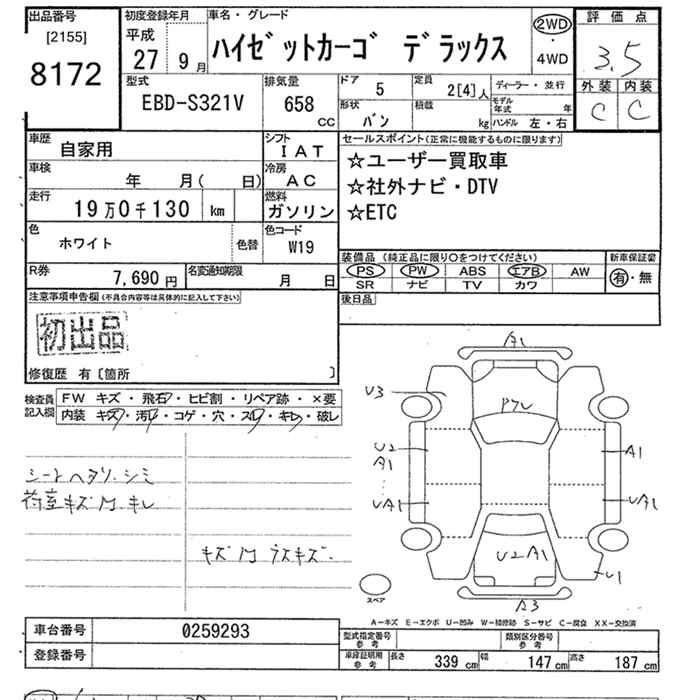 出品番号 初度登録年月 車名・グレード 評価点
[2155] 平成
8172 27 9月 ハイゼットカーゴ デラックス 2WD・4WD 3.5
型式 排気量 ドア 5 定員 2[4]人 ディーラー・並行 外装 内装
EBD-S321V 658cc 形状 バン 積載 kg モデル年式 年 C C
ハンドル 左・右
車歴 自家用 シフト IAT セールスポイント(正常に機能するものに限ります)
車検 年 月( 日) 冷房 AC ☆ユーザー買取車
走行 19万0千130 km 燃料 ガソリン ☆社外ナビ・DTV
☆ETC
色 ホワイト 色替 色コード W19
装備品(純正品に限り○をつけてください) 新車保証書
R券 7,690円 名変通知期限 月 日 PS PW ABS エアB AW 有・無
SR ナビ TV カワ
注意事項申告欄(不具合内容等は具体的に記入して下さい) 後日品
初出品
修復歴 有〔箇所 〕
検査員記入欄 FW キズ・飛石・ヒビ割・リペア跡・×要
内装 キズ・汚れ・コゲ・穴・スレ・キレ・破レ
シートヘタリ、シミ
荷室キズ キレ
A1
U3
U2 A1 A1
UA1 UA1
U2 A1
U1
スペア A3
A－キズ E－エクボ U－凹み W－補修跡 S－サビ C－腐食 XX－交換済
車台番号 0259293 型式指定番号 参考 類別区分番号 参考
登録番号 車庫証明用 参考 長さ 339cm 幅 147cm 高さ 187cm